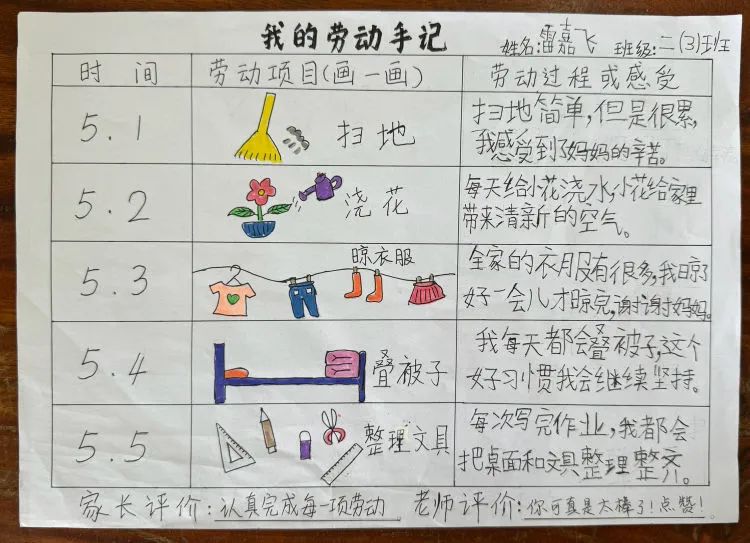 我的劳动手记
姓名:雷嘉飞 班级:二(3)班
时 间 劳动项目(画一画) 劳动过程或感受
5.1 扫地 扫地简单,但是很累,
我感受到了妈妈的辛苦。
5.2 浇花 每天给小花浇水,小花给家里
带来清新的空气。
5.3 晾衣服 全家的衣服有很多,我晾了
好一会儿才晾完,谢谢妈妈。
5.4 叠被子 我每天都会叠被子,这个
好习惯我会继续坚持。
5.5 整理文具 每次写完作业,我都会
把桌面和文具整理整齐。
家长评价:认真完成每一项劳动 老师评价:你可真是太棒了!点赞!